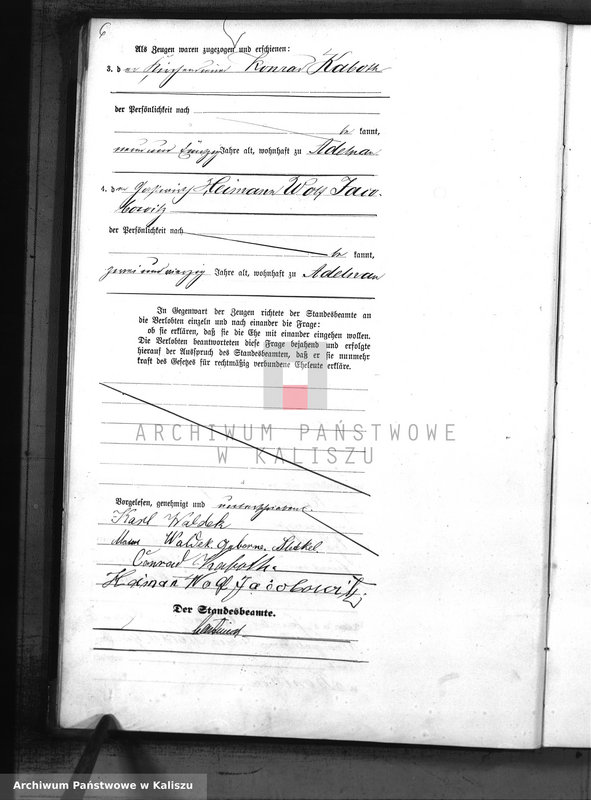 6
Als Zeugen waren zugezogen und erschienen:
3. der Konrad Kaboth
der Persönlichkeit nach
be kannt,
neun und fünfzig Jahre alt, wohnhaft zu Adelnau
4. der Heimann Wolf Jaco-
bowitz
der Persönlichkeit nach
be kannt,
zwei und vierzig Jahre alt, wohnhaft zu Adelnau
In Gegenwart der Zeugen richtete der Standesbeamte an
die Verlobten einzeln und nach einander die Frage:
ob sie erklären, daß sie die Ehe mit einander eingehen wollen.
Die Verlobten beantworteten diese Frage bejahend und erfolgte
hierauf der Ausspruch des Standesbeamten, daß er sie nunmehr
kraft des Gesetzes für rechtmäßig verbundene Eheleute erkläre.
ARCHIWUM PAŃSTWOWE
W KALISZU
Vorgelesen, genehmigt und unterschrieben.
Karl Waldek
Waldek geborne
Conrad Kaboth.
Heiman Wolf Jacobowitz.
Der Standesbeamte.
Archiwum Państwowe w Kaliszu